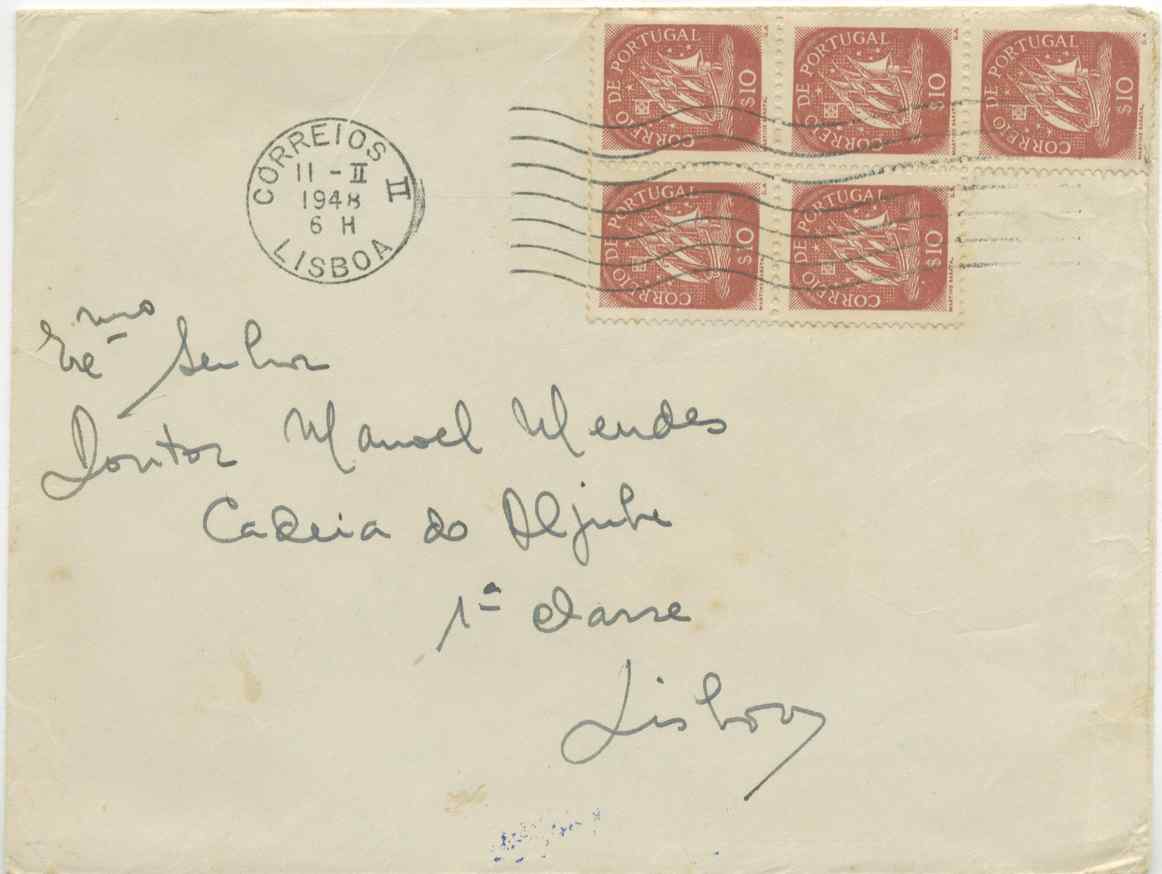 CORREIOS II
11 - II
1948
6 H
LISBOA
CORREIO DE PORTUGAL $10
CORREIO DE PORTUGAL $10
CORREIO DE PORTUGAL $10
CORREIO DE PORTUGAL $10
CORREIO DE PORTUGAL $10
Exᵐᵒ Senhor
Doutor Manoel Mendes
Cadeia do Aljube
1ª classe
Lisboa